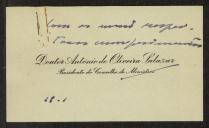 Com os meus respei-
tosos cumprimentos
Doutor António de Oliveira Salazar
Presidente do Conselho de Ministros